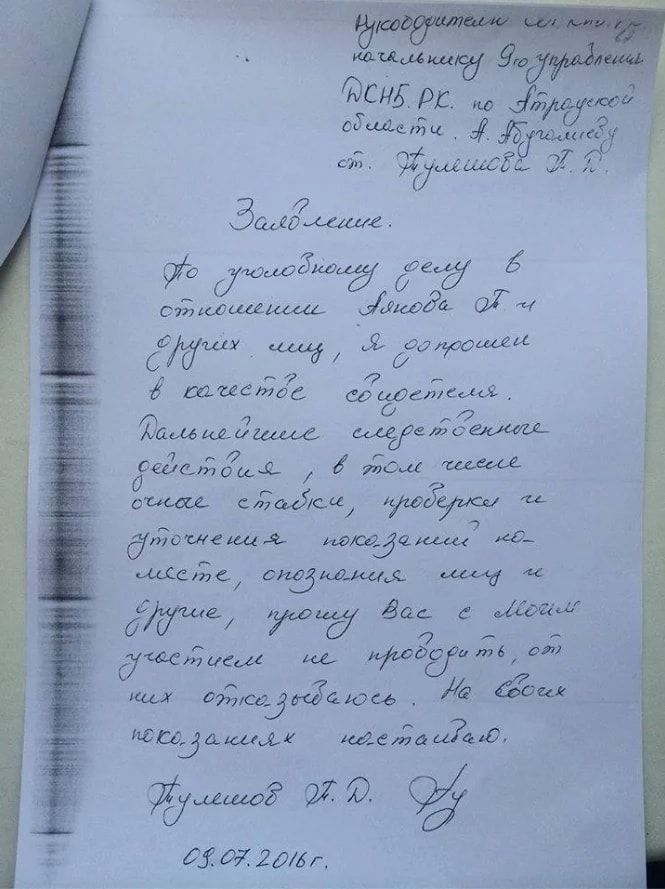 Руководителю
начальнику 9го управления
ДКНБ. РК. по Атрауской
области. А. Абугалиеву
от. Тулешова Т. Д.
Заявление.
По уголовному делу в
отношении Аякова Т. и
других лиц, я допрошен
в качестве свидетеля.
Дальнейшие следственные
действия, в том числе
очные ставки, проверки и
уточнения показаний на-
месте, опознания лиц и
другие, прошу Вас с моим
участием не проводить, от
них отказываюсь. На своих
показаниях настаиваю.
Тулешов Т. Д.
09.07.2016г.